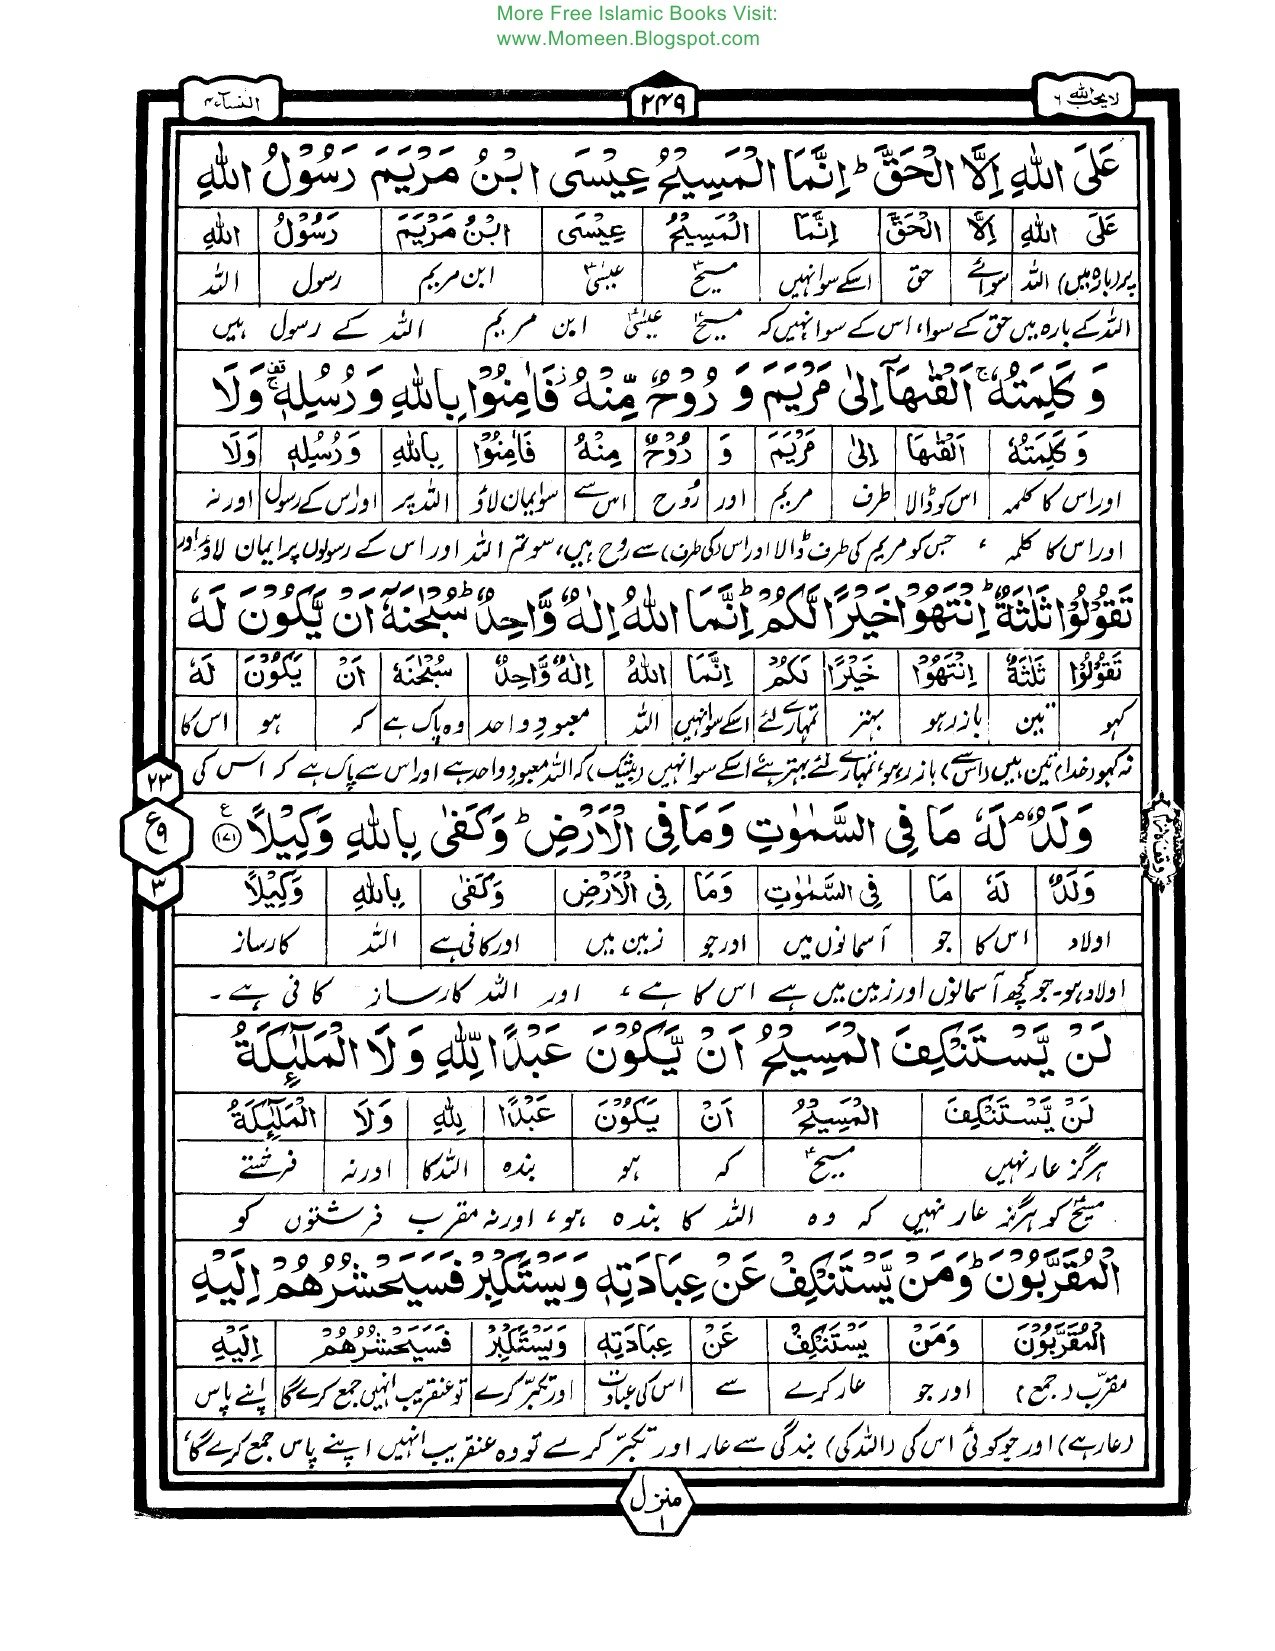 More Free Islamic Books Visit:
www.Momeen.Blogspot.com
لا یحب اللہ ۶
۲۴۹
النسآء ۴
عَلَى اللّٰهِ اِلَّا الْحَقَّ ؕ اِنَّمَا الْمَسِيْحُ عِيْسَى ابْنُ مَرْيَمَ رَسُوْلُ اللّٰهِ
عَلَى اللّٰهِ اِلَّا الْحَقَّ اِنَّمَا الْمَسِيْحُ عِيْسَى ابْنُ مَرْيَمَ رَسُوْلُ اللّٰهِ
پر (بارہ میں) اللہ سوائے حق اسکے سوا نہیں مسیحؑ عیسیٰؑ ابن مریم رسول اللہ
اللہ کے بارہ میں حق کے سوا، اس کے سوا نہیں کہ مسیحؑ عیسیٰؑ ابن مریم اللہ کے رسول ہیں
وَ كَلِمَتُهٗ ۚ اَلْقٰىهَاۤ اِلٰى مَرْيَمَ وَ رُوْحٌ مِّنْهُ ؗ فَاٰمِنُوْا بِاللّٰهِ وَ رُسُلِهٖ ۚ وَلَا
وَ كَلِمَتُهٗ اَلْقٰىهَا اِلٰى مَرْيَمَ وَ رُوْحٌ مِنْهُ فَاٰمِنُوْا بِاللّٰهِ وَ رُسُلِهٖ وَلَا
اور اس کا کلمہ اس کو ڈالا طرف مریم اور رُوح اس سے سو ایمان لاؤ اللہ پر اور اس کے رسول اور نہ
اور اس کا کلمہ، جس کو مریم کی طرف ڈالا اور اس (کی طرف) سے روح ہیں، سو تم اللہ اور اس کے رسولوں پر ایمان لاؤ، اور
تَقُوْلُوْا ثَلٰثَةٌ ؕ اِنْتَهُوْا خَيْرًا لَّكُمْ ؕ اِنَّمَا اللّٰهُ اِلٰهٌ وَّاحِدٌ ؕ سُبْحٰنَهٗۤ اَنْ يَّكُوْنَ لَهٗ
تَقُوْلُوْا ثَلٰثَةٌ اِنْتَهُوْا خَيْرًا لَكُمْ اِنَّمَا اللّٰهُ اِلٰهٌ وَّاحِدٌ سُبْحٰنَهٗ اَنْ يَكُوْنَ لَهٗ
کہو تین باز رہو بہتر تمہارے لئے اسکے سوا نہیں اللہ معبودِ واحد وہ پاک ہے کہ ہو اس کا
نہ کہو (خدا) تین ہیں (اس سے) باز رہو، تمہارے لئے بہتر ہے اسکے سوا نہیں (بیشک) کہ اللہ معبودِ واحد ہے اور اس سے پاک ہے کہ اس کی
۲۳
ع ۹
۳
وَلَدٌ ۘ لَهٗ مَا فِى السَّمٰوٰتِ وَمَا فِى الْاَرْضِ ؕ وَكَفٰى بِاللّٰهِ وَكِيْلًا ﴿۱۷۱﴾ ع
وَلَدٌ لَهٗ مَا فِى السَّمٰوٰتِ وَمَا فِى الْاَرْضِ وَكَفٰى بِاللّٰهِ وَكِيْلًا
اولاد اس کا جو آسمانوں میں اور جو زمین میں اور کافی ہے اللہ کارساز
اولاد ہو۔ جو کچھ آسمانوں اور زمین میں ہے اس کا ہے، اور اللہ کارساز کافی ہے۔
لَنْ يَّسْتَنْكِفَ الْمَسِيْحُ اَنْ يَّكُوْنَ عَبْدًا لِّلّٰهِ وَ لَا الْمَلٰٓئِكَةُ
لَنْ يَّسْتَنْكِفَ الْمَسِيْحُ اَنْ يَكُوْنَ عَبْدًا لِلّٰهِ وَلَا الْمَلٰٓئِكَةُ
ہرگز عار نہیں مسیحؑ کہ ہو بندہ اللہ کا اور نہ فرشتے
مسیحؑ کو ہرگز عار نہیں کہ وہ اللہ کا بندہ ہو، اور نہ مقرب فرشتوں کو
الْمُقَرَّبُوْنَ ؕ وَمَنْ يَّسْتَنْكِفْ عَنْ عِبَادَتِهٖ وَيَسْتَكْبِرْ فَسَيَحْشُرُهُمْ اِلَيْهِ
الْمُقَرَّبُوْنَ وَمَنْ يَسْتَنْكِفْ عَنْ عِبَادَتِهٖ وَيَسْتَكْبِرْ فَسَيَحْشُرُهُمْ اِلَيْهِ
مقرّب (جمع) اور جو عار کرے سے اس کی عبادت اور تکبّر کرے تو عنقریب انہیں جمع کرے گا اپنے پاس
(عار ہے) اور جو کوئی اس کی (اللہ کی) بندگی سے عار اور تکبّر کرے تو وہ عنقریب انہیں اپنے پاس جمع کرے گا،
منزل
۱